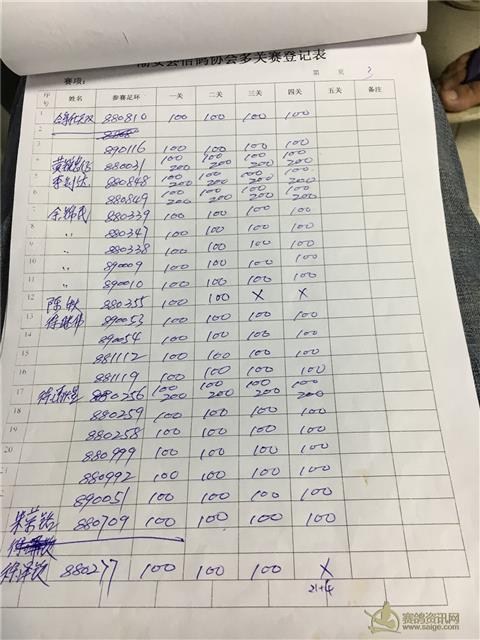 潮安县信鸽协会多关赛登记表
赛项： 第 页 3
序号 姓名 参赛足环 一关 二关 三关 四关 五关 备注
1 880810 100 100 100 100
2
3 890116 100 100 100 100
4 880031 100 200 100 200 100 200 100 200
5 880848 100 200 100 200 100 200 100 200
6 880849 100 200 100 200 100 200 100 200
7 余锦民 880339 100 100 100 100
8 〃 880347 100 100 100 100
9 〃 880338 100 100 100 100
10 〃 890009 100 100 100 100
11 〃 890010 100 100 100 100
12 陈 880355 100 100 X X
13 890053 100 100 100 100
14 890054 100 100 100 100
15 881112 100 100 100 100
16 881119 100 100 100 100
17 880256 100 200 100 200 100 200 100 200
18 880259 100 100 100 100
19 880258 100 100 100 100
880999 100 100 100 100
880992 100 100 100 100
890051 100 100 100 100
880709 100 100 100 100
880277 100 100 100 X
21+4
赛鸽资讯网
www.saige.com